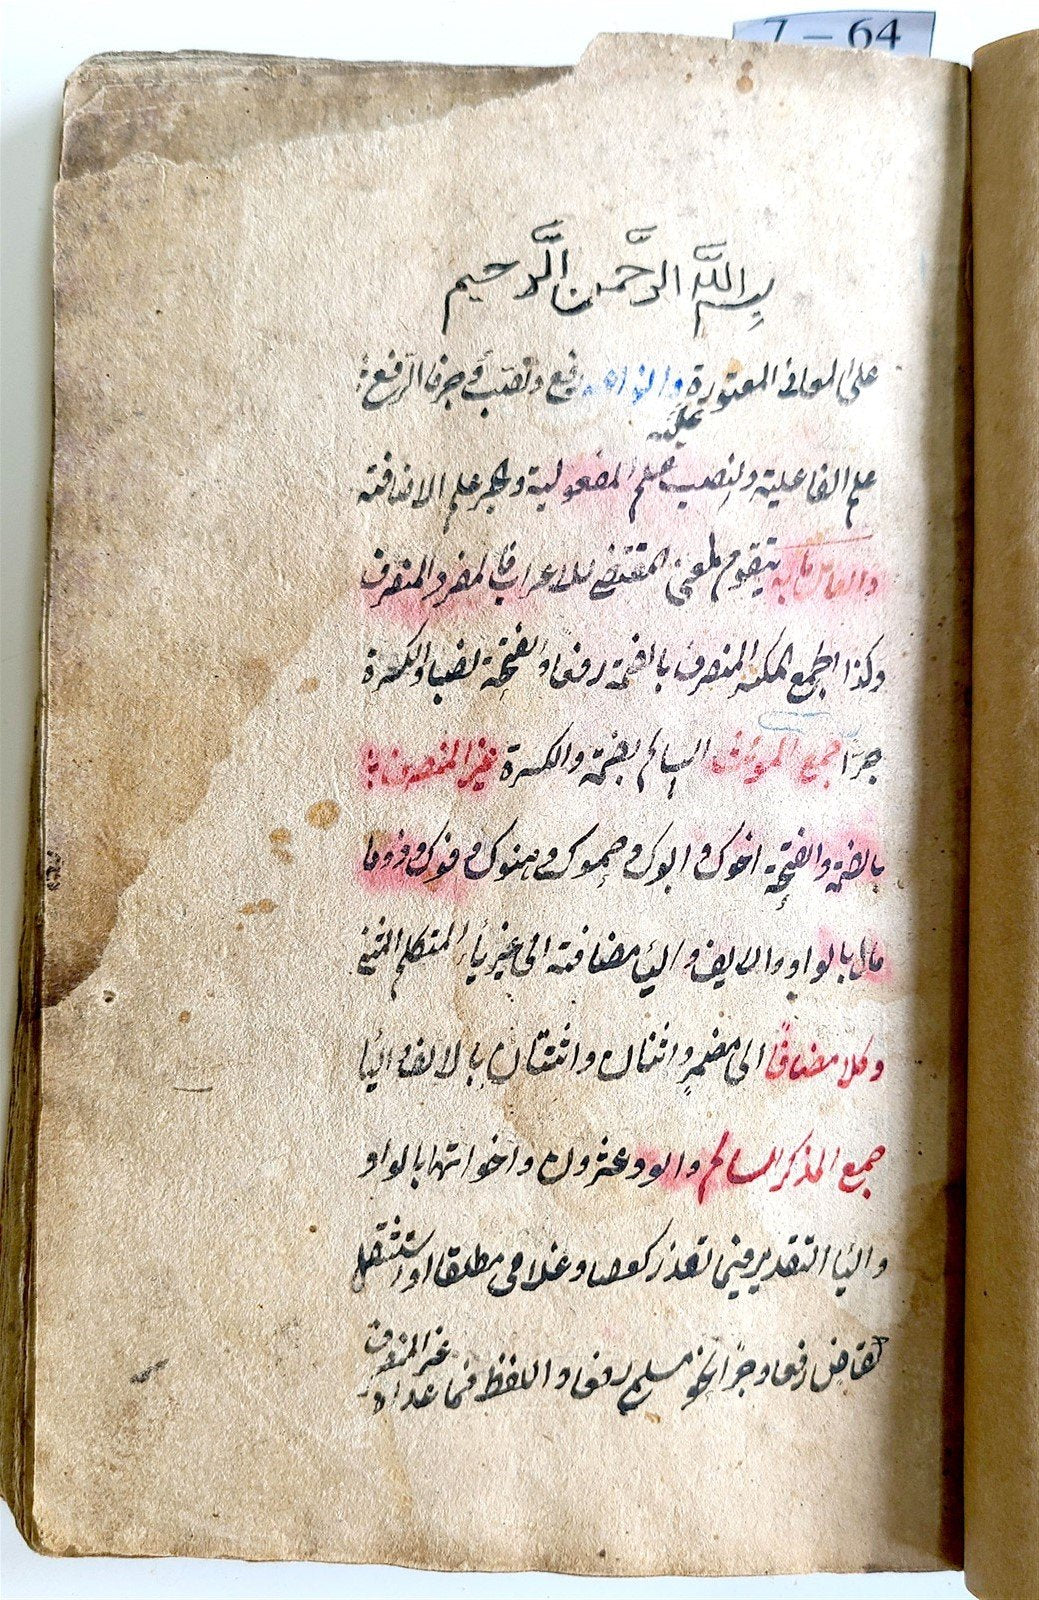 7 – 64
بسم اللَّه الرَّحمن الَّرحيم
على المعانى المعتورة وانواعه رفع ونصب و جر فالرفع
علم الفاعلية والنصب علم المفعولية والجر علم الاضافة
والعامل ما به يتقوم المعنى المقتضى للاعراب فالمفرد المنصرف
وكذا الجمع المكسر المنصرف بالضمة رفعا والفتحة نصبا والكسرة
جرّا جمع المؤنث السالم بضمة والكسرة غير المنصرف
بالضمة والفتحة اخوك و ابوك و حموك و هنوك و فوك و ذو ما
مال بالواو والالف واليا مضافة الى غير ياء المتكلم المثنى
وكلا مضافًا الى مضمرٍ واثنان واثنتان بالالف واليا
جمع المذكر السالم والو وعشرون واخواتها بالواو
واليا التقدير فيما تعذر كعصا وغلامى مطلقا او استثقل
كقاض رفعا وجرّا ونحو مسلمى رفعا واللفظ فيما عداه
غير المنصرف